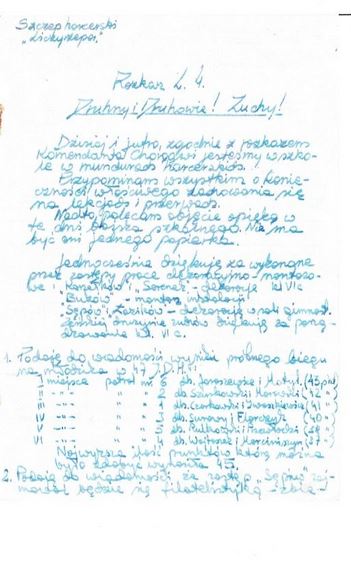 Szczep harcerski
Rozkaz L. 4.
Druhny i Druhowie! Zuchy!
Dzisiaj i jutro, zgodnie z rozkazem
Komendanta Chorągwi jesteśmy w szko-
le w mundurach harcerskich.
Przypominam wszystkim o koniec-
zności właściwego zachowania się
na lekcjach i przerwach.
Nadto, polecam objęcie opieką w
te dni boiska szkolnego. Nie ma
być ani jednego papierka.
Jednocześnie dziękuję za wykonane
przez zastępy prace dekoracyjno-montażo-
we i "Sarenek" - dekoracje kl VIc
"Buków" - montaż instalacji
"Sępów" i - dekoracja sali gimnast.
Żeńskiej drużynie zuchów dziękuję za porzą-
kl. VI c.
1. Podaję do wiadomości wyniki próbnego biegu
na w 47 J.D.H.:
I miejsce patrol nr. 6 dh. i Motyl. (43 pkt)
II " " " 2 dh. 42
III " " " 1 dh. i 41
IV " " " 3 dh. i 40
V " " " 5 dh.
VI " " " 4 dh. i 37
Najwyższa ilość punktów którą można
było zdobyć wynosiła 45.
2. Podaję do wiadomości, że zastęp "Sępów" zaj-
mować będzie się filatelistyką - zbie-